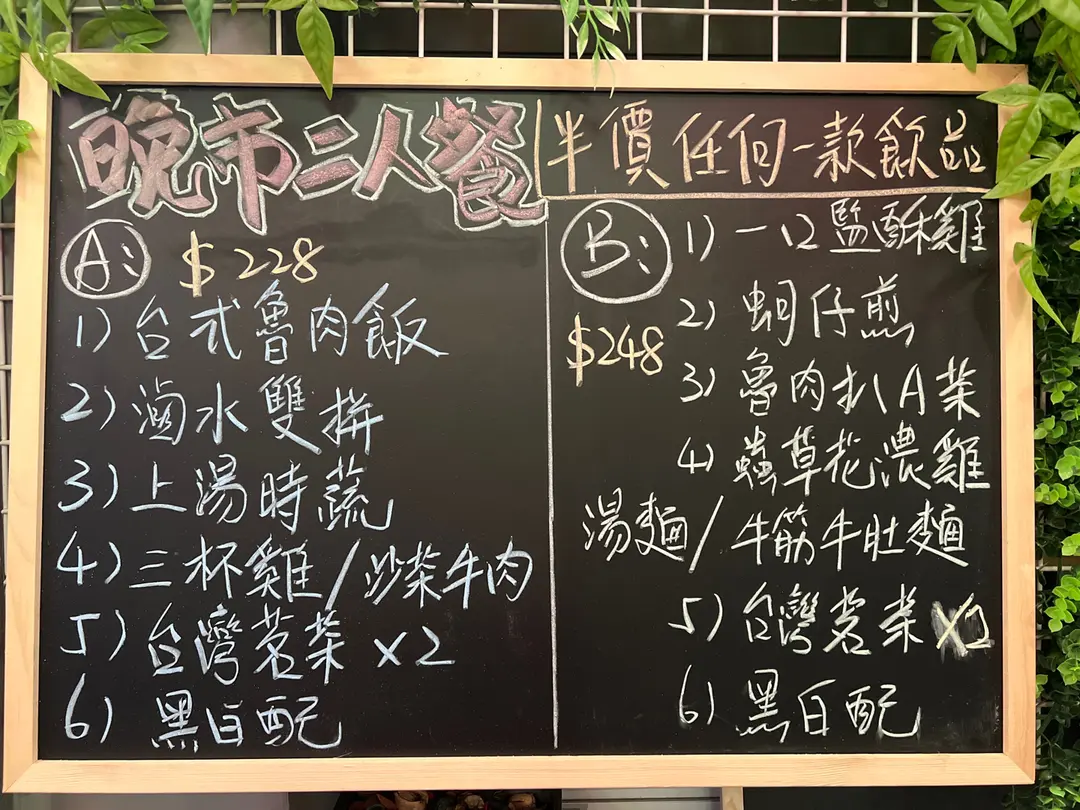 晚市二人餐
半價任何一款飲品
A: $228
1) 台式魯肉飯
2) 滷水雙拼
3) 上湯時蔬
4) 三杯雞/沙茶牛肉
5) 台灣茗茶 x2
6) 黑白配
B: $248
1) 一口鹽酥雞
2) 蚵仔煎
3) 魯肉扒A菜
4) 蟲草花濃雞
湯麵/牛筋牛肚麵
5) 台灣茗茶 x2
6) 黑白配